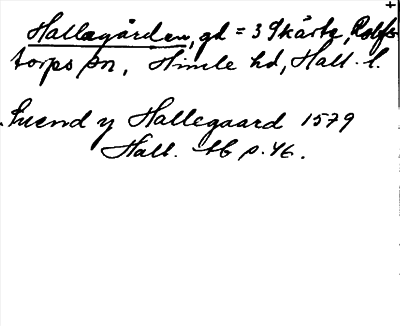 Hallagården, gd = 3 Skårte, Rolfs-
torps sn, Himle hd, Hall. l.
Suend y Hallegaard 1579
Hall. tb p. 46.